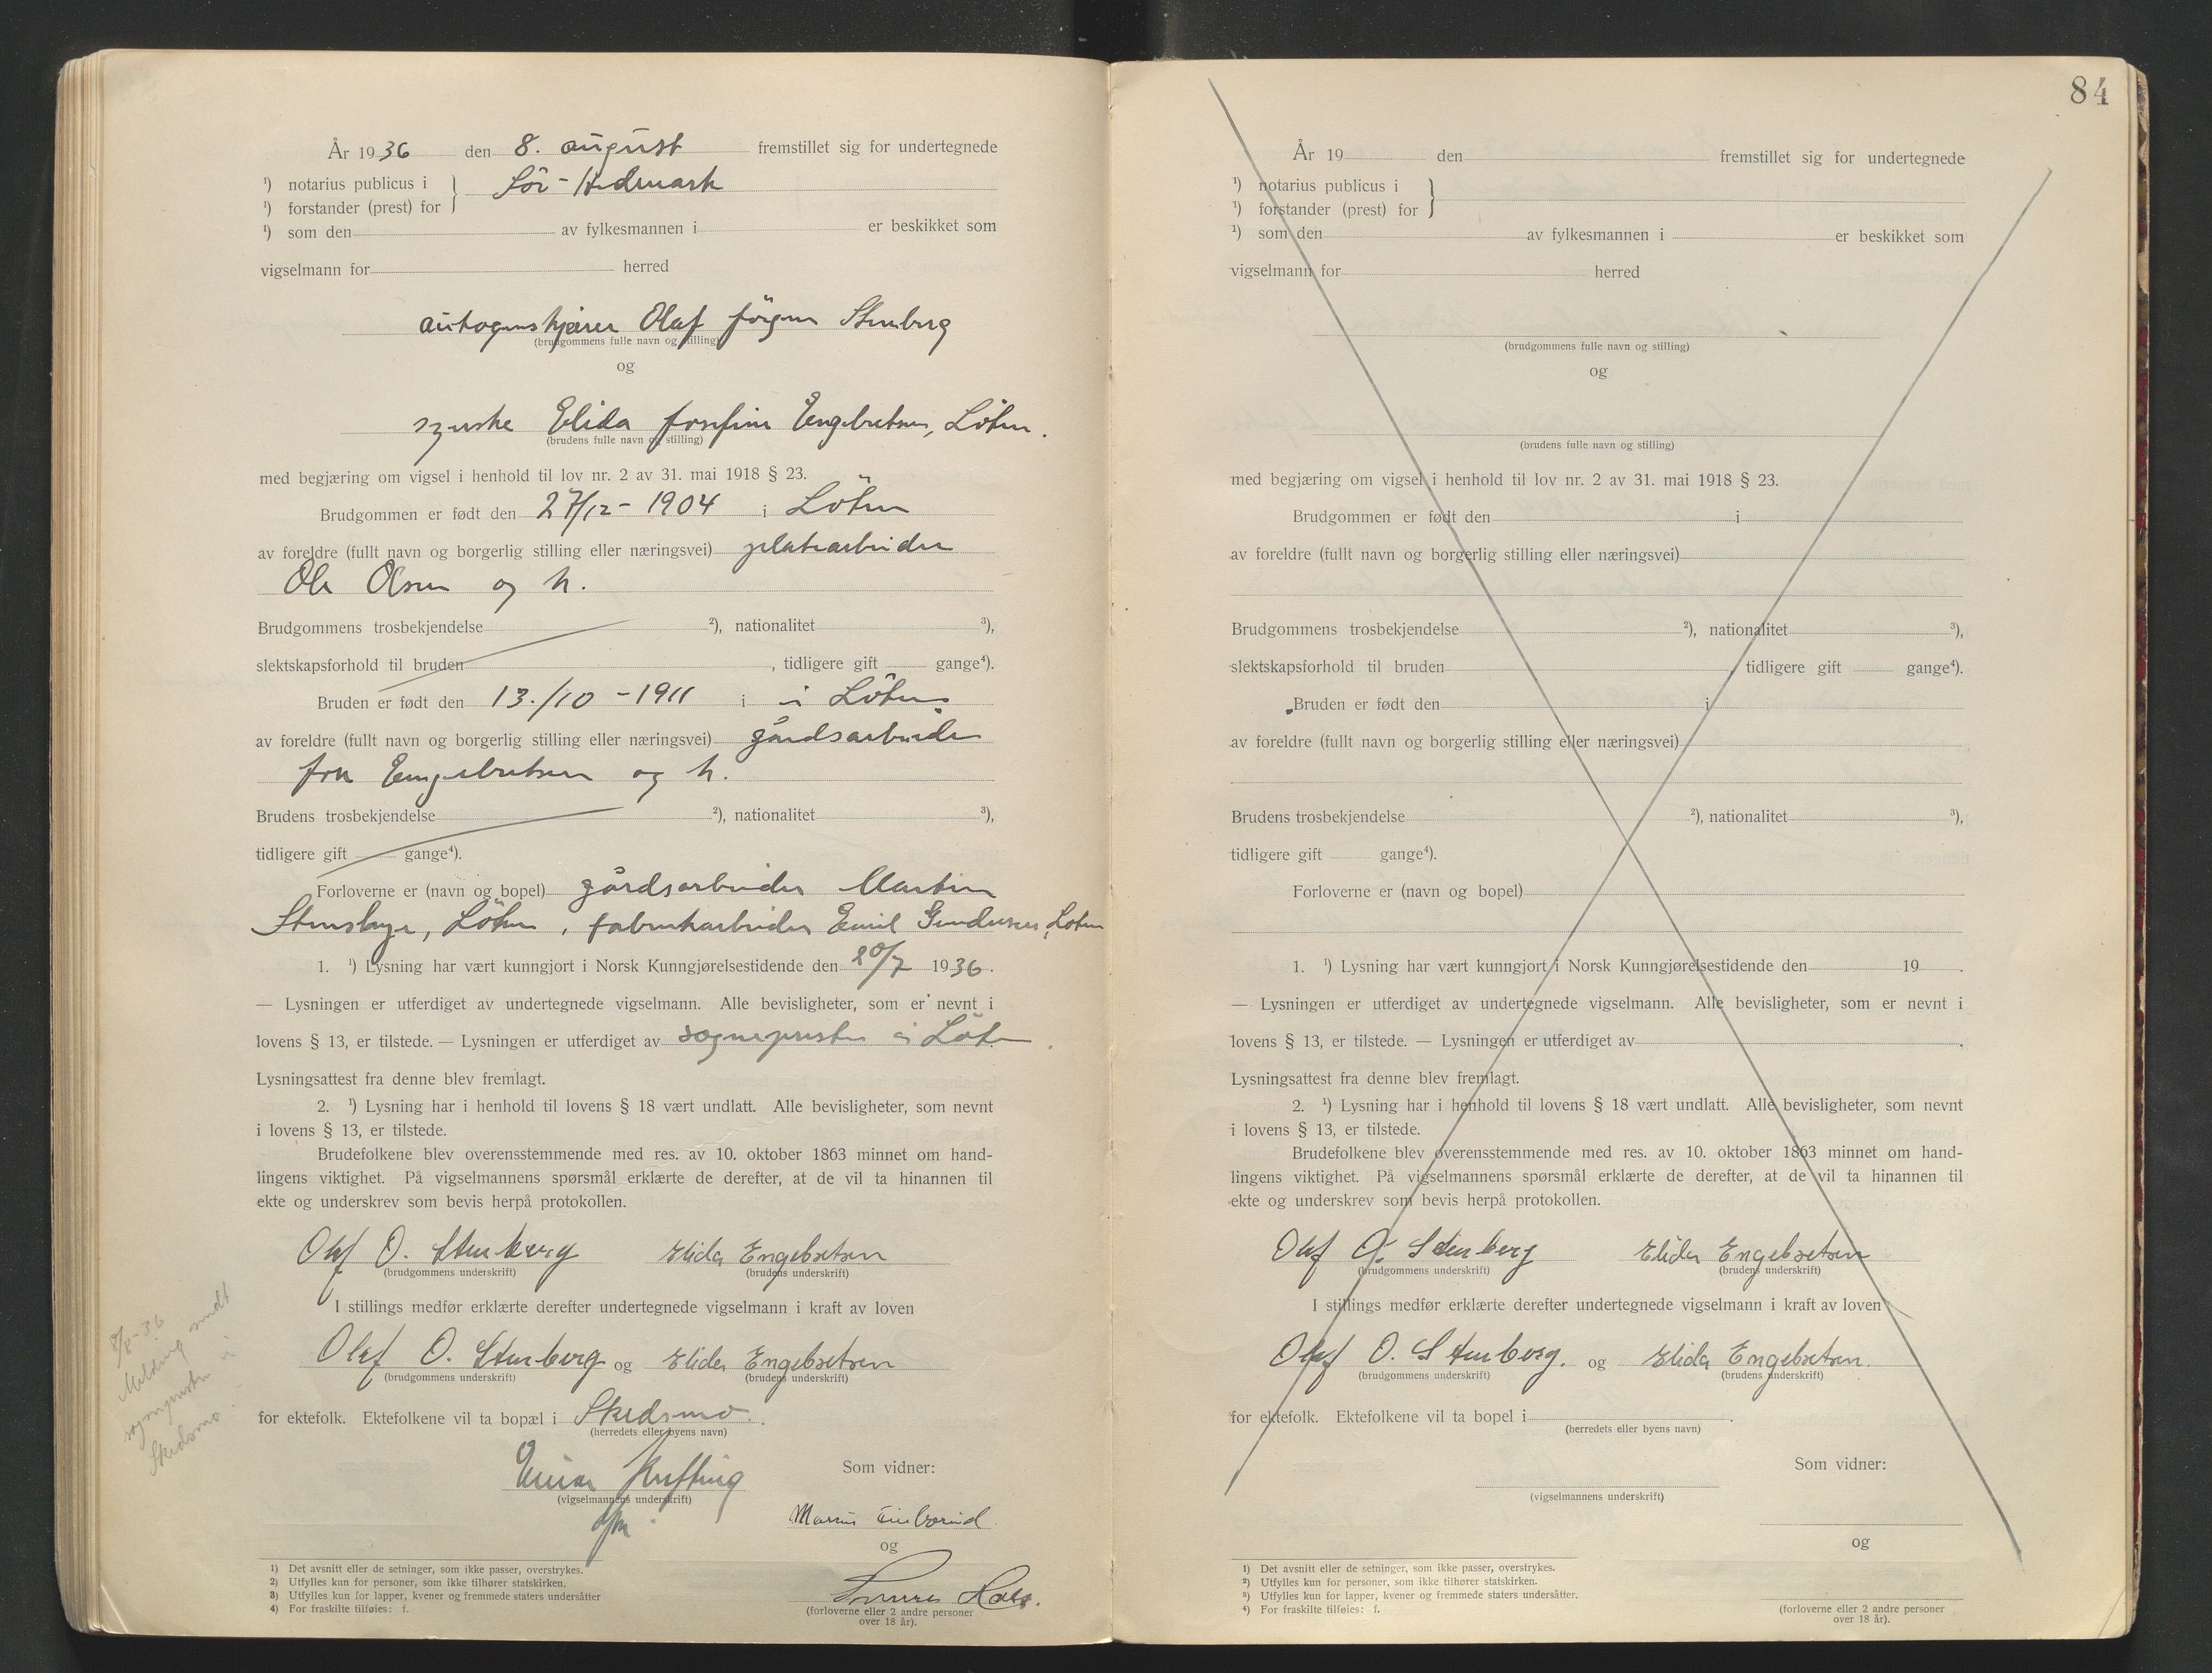 År 1936 den 8. august fremstillet sig for undertegnede
¹) notarius publicus i } Sör-Hedmark
¹) forstander (prest) for
¹) som den av fylkesmannen i er beskikket som
vigselmann for herred
autogenskjærer Olaf Jörgen Stenberg
(brudgommens fulle navn og stilling)
og
syerske Elida Josefine Engebretsen, Löten.
(brudens fulle navn og stilling)
med begjæring om vigsel i henhold til lov nr. 2 av 31. mai 1918 § 23.
Brudgommen er født den 27/12 - 1904 i Löten
av foreldre (fullt navn og borgerlig stilling eller næringsvei) platearbeider
Ole Olsen og h.
Brudgommens trosbekjendelse ²), nationalitet ³),
slektskapsforhold til bruden , tidligere gift gange⁴).
Bruden er født den 13./10 - 1911 i i Löten
av foreldre (fullt navn og borgerlig stilling eller næringsvei) gårdsarbeider
Engebretsen og h.
Brudens trosbekjendelse ²), nationalitet ³),
tidligere gift gange⁴).
Forloverne er (navn og bopel) gårdsarbeider Martin
Stenshage, Löten, fabrikarbeider Emil Gundersen, Löten
1. ¹) Lysning har vært kunngjort i Norsk Kunngjørelsestidende den 20/7 1936.
— Lysningen er utferdiget av undertegnede vigselmann. Alle bevisligheter, som er nevnt i
lovens § 13, er tilstede. — Lysningen er utferdiget av sognepresten i Löten.
Lysningsattest fra denne blev fremlagt.
2. ¹) Lysning har i henhold til lovens § 18 vært undlatt. Alle bevisligheter, som nevnt
i lovens § 13, er tilstede.
Brudefolkene blev overensstemmende med res. av 10. oktober 1863 minnet om hand-
lingens viktighet. På vigselmannens spørsmål erklærte de derefter, at de vil ta hinannen til
ekte og underskrev som bevis herpå protokollen.
Olaf O. Stenberg Elida Engebretsen
(brudgommens underskrift) (brudens underskrift)
I stillings medfør erklærte derefter undertegnede vigselmann i kraft av loven
Olaf O. Stenberg og Elida Engebretsen
(brudgommens underskrift) (brudens underskrift)
for ektefolk. Ektefolkene vil ta bopæl i Skedsmo.
(herredets eller byens navn)
8/8-36
Melding sendt
sognepresten i
Skedsmo.
Einar Kufting
(vigselmannens underskrift)
Som vidner:
og
(forloverne eller 2 andre personer
over 18 år).
1) Det avsnitt eller de setninger, som ikke passer, overstrykes.
2) Utfylles kun for personer, som ikke tilhører statskirken.
3) Utfylles kun for lapper, kvener og fremmede staters undersåtter
4) For fraskilte tilføies: f.
84
År 19 den fremstillet sig for undertegnede
¹) notarius publicus i }
¹) forstander (prest) for
¹) som den av fylkesmannen i er beskikket som
vigselmann for herred
(brudgommens fulle navn og stilling)
og
(brudens fulle navn og stilling)
med begjæring om vigsel i henhold til lov nr. 2 av 31. mai 1918 § 23.
Brudgommen er født den i
av foreldre (fullt navn og borgerlig stilling eller næringsvei)
Brudgommens trosbekjendelse ²), nationalitet ³),
slektskapsforhold til bruden , tidligere gift gange⁴).
Bruden er født den i
av foreldre (fullt navn og borgerlig stilling eller næringsvei)
Brudens trosbekjendelse ²), nationalitet ³),
tidligere gift gange⁴).
Forloverne er (navn og bopel)
1. ¹) Lysning har vært kunngjort i Norsk Kunngjørelsestidende den 19 .
— Lysningen er utferdiget av undertegnede vigselmann. Alle bevisligheter, som er nevnt i
lovens § 13, er tilstede. — Lysningen er utferdiget av .
Lysningsattest fra denne blev fremlagt.
2. ¹) Lysning har i henhold til lovens § 18 vært undlatt. Alle bevisligheter, som nevnt
i lovens § 13, er tilstede.
Brudefolkene blev overensstemmende med res. av 10. oktober 1863 minnet om hand-
lingens viktighet. På vigselmannens spørsmål erklærte de derefter, at de vil ta hinannen til
ekte og underskrev som bevis herpå protokollen.
Olaf O. Stenberg Elida Engebretsen
(brudgommens underskrift) (brudens underskrift)
I stillings medfør erklærte derefter undertegnede vigselmann i kraft av loven
Olaf O. Stenberg. og Elida Engebretsen.
(brudgommens underskrift) (brudens underskrift)
for ektefolk. Ektefolkene vil ta bopel i .
(herredets eller byens navn)
Som vidner:
(vigselmannens underskrift)
og
(forloverne eller 2 andre personer
over 18 år).
1) Det avsnitt eller de setninger, som ikke passer, overstrykes.
2) Utfylles kun for personer, som ikke tilhører statskirken.
3) Utfylles kun for lapper, kvener og fremmede staters undersåtter.
4) For fraskilte tilføies: f.